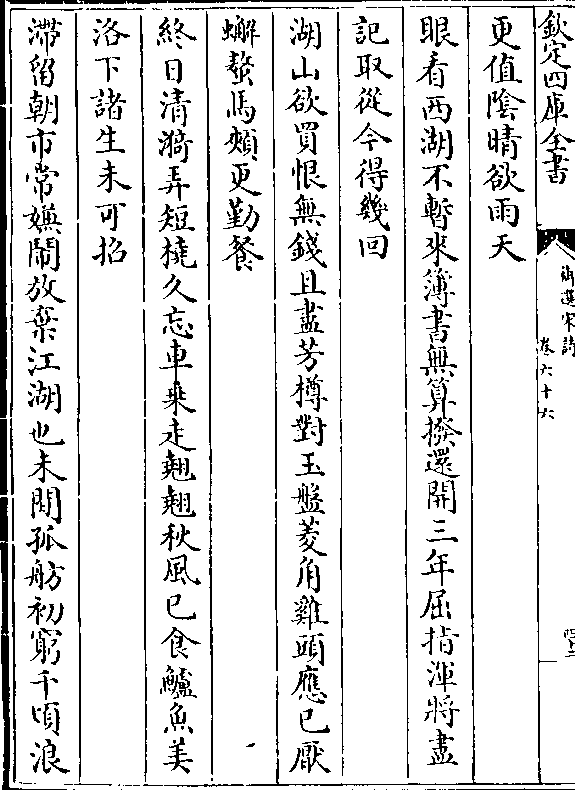 欽定四庫全書
御選宋詩
卷六十六
四十二
更值陰晴欲雨天
眼看西湖不暫來簿書無算撥還開三年屈指渾將盡
記取從今得幾回
湖山欲買恨無錢且盡芳樽對玉盤菱角雞頭應已厭
蠏螯馬頰更勤餐
終日清漪弄短橈久忘車乗走翹翹秋風已食鱸魚美
洛下諸生未可招
滯留朝市常嫌鬧放棄江湖也未閒孤舫初窮千頃浪